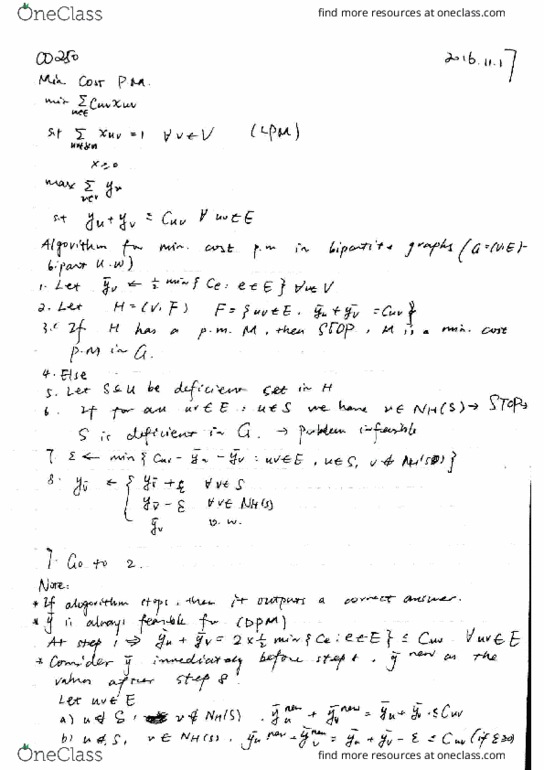 OneClass
find more resources at oneclass.com
CO250
2016.11.17
Min Cost P.M.
min Σ Cuv xuv
uv∈E
s.t Σ xuv = 1 ∀v∈V (LPM)
x≥0
max Σ yv
v∈V
st yu + yv ≤ Cuv ∀uv∈E
Algorithm for min. cost p.m in bipartite graphs (G=(V,E)-
bipart U.W)
1. Let ȳv ← ½ min{Ce : e∈E} ∀v∈V
2. Let H=(V,F) F={uv∈E. ȳu+ȳv =Cuv}
3. If H has a p.m. M, then STOP, M is a min. cost
p.M in G.
4. Else
5. Let S⊆U be deficient set in H
6. If for all uv∈E : u∈S we have v∈NH(S) → STOP,
S is deficient in G. → problem infeasible
7. ε ← min{Cuv - ȳu - ȳv : uv∈E, u∈S, v∉NH(S)}
8. ȳv ← { ȳv + ε ∀v∈S
ȳv - ε ∀v∈NH(S)
ȳv o.w.
9. Go to 2.
Note:
* If alogorithm stops, then it outputs a correct answer.
* ȳ is always feasible for (DPM)
At step 1 ⇒ ȳu + ȳv = 2×½ min{Ce : e∈E} ≤ Cuv ∀uv∈E
* Consider ȳ immediately before step 8, ȳ new as the
values after step 8.
Let uv∈E
a) u∉S, v∉NH(S). ȳu new + ȳv new = ȳu+ȳv ≤Cuv
b) u∉S, v∈NH(S). ȳu new + ȳv new = ȳu + ȳv - ε ≤ Cuv (if ε≥0)
OneClass
find more resources at oneclass.com